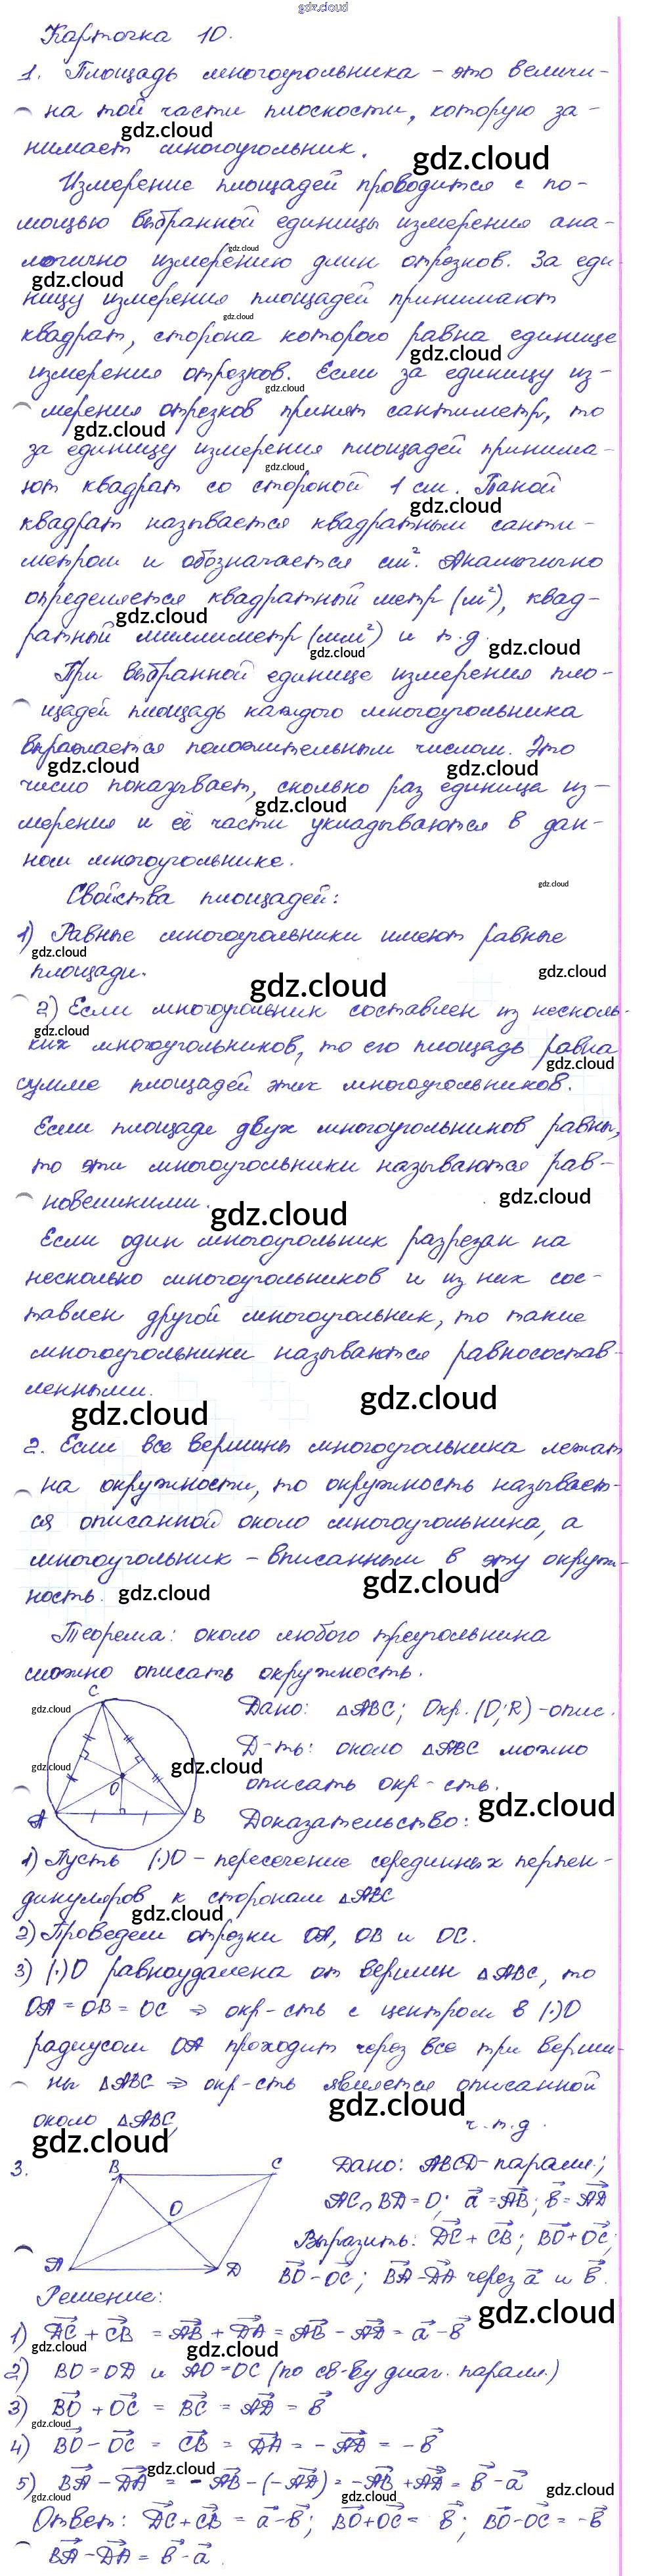 gdz.cloud
Карточка 10.
1. Площадь многоугольника - это величи-
на той части плоскости, которую за-
gdz.cloud
нимает многоугольник.
gdz.cloud
Измерение площадей проводится с по-
мощью выбранной единицы измерения ана-
gdz.cloud
логично измерению длин отрезков. За еди
gdz.cloud
ницу измерения площадей принимают
gdz.cloud
квадрат, сторона которого равна единице
gdz.cloud
измерения отрезков. Если за единицу из-
gdz.cloud
мерения отрезков принят сантиметр, то
gdz.cloud
за единицу измерения площадей принима-
gdz.cloud
ют квадрат со стороной 1 см. Такой
gdz.cloud
квадрат называется квадратным санти-
метром и обозначается см². Аналогично
определяется квадратный метр (м²), квад-
gdz.cloud
ратный миллиметр (мм²) и т.д.
gdz.cloud gdz.cloud
При выбранной единице измерения пло-
щадей площадь каждого многоугольника
выражается положительным числом. Это
gdz.cloud gdz.cloud
число показывает, сколько раз единица из-
gdz.cloud
мерения и её части укладываются в дан-
ном многоугольнике.
gdz.cloud
Свойства площадей:
1) Равные многоугольники имеют равные
gdz.cloud
площади.
gdz.cloud
gdz.cloud
2) Если многоугольник составлен из несколь-
gdz.cloud
ких многоугольников, то его площадь равна
gdz.cloud
сумме площадей этих многоугольников.
Если площади двух многоугольников равны,
то эти многоугольники называются рав-
новеликими.
gdz.cloud
gdz.cloud
Если один многоугольник разрезан на
несколько многоугольников и из них сос-
тавлен другой многоугольник, то такие
многоугольники называются равносостав-
ленными.
gdz.cloud
gdz.cloud
2. Если все вершины многоугольника лежат
на окружности, то окружность называет-
ся описанной около многоугольника, а
многоугольник - вписанным в эту окруж-
gdz.cloud
ность.
gdz.cloud
Теорема: около любого треугольника
можно описать окружность.
C
gdz.cloud
Дано: △ABC; Окр.(O;R)-опис.
Д-ть: около △ABC можно
gdz.cloud
gdz.cloud
O
описать окр-сть.
gdz.cloud
A B
Доказательство:
1) Пусть (·)O - пересечение серединных перпен-
дикуляров к сторонам △ABC
gdz.cloud
2) Проведем отрезки OA, OB и OC.
3) (·)O равноудалена от вершин △ABC, то
OA = OB = OC ⇒ окр-сть с центром в (·)O
радиусом OA проходит через все три верши-
ны △ABC ⇒ окр-сть является описанной
gdz.cloud
около △ABC,
ч.т.д.
gdz.cloud
3. B C
O
A D
Дано: ABCD-паралл.;
AC∩BD=O; a⃗=AB⃗; b⃗=AD⃗
Выразить: DC⃗+CB⃗; BO⃗+OC⃗;
BO⃗-OC⃗; BA⃗-DA⃗ через a⃗ и b⃗.
Решение:
gdz.cloud
1) DC⃗+CB⃗ = AB⃗+DA⃗ = AB⃗-AD⃗ = a⃗-b⃗
gdz.cloud gdz.cloud
2) BO=OD и AO=OC (по св-ву диаг. паралл.)
3) BO⃗+OC⃗ = BC⃗ = AD⃗ = b⃗
gdz.cloud
4) BO⃗-OC⃗ = CB⃗ = DA⃗ = -AD⃗ = -b⃗
gdz.cloud
5) BA⃗-DA⃗ = -AB⃗-(-AD⃗) = -AB⃗+AD⃗ = b⃗-a⃗
gdz.cloud gdz.cloud gdz.cloud
Ответ: DC⃗+CB⃗ = a⃗-b⃗; BO⃗+OC⃗ = b⃗; BO⃗-OC⃗ = -b⃗
BA⃗-DA⃗ = b⃗-a⃗.